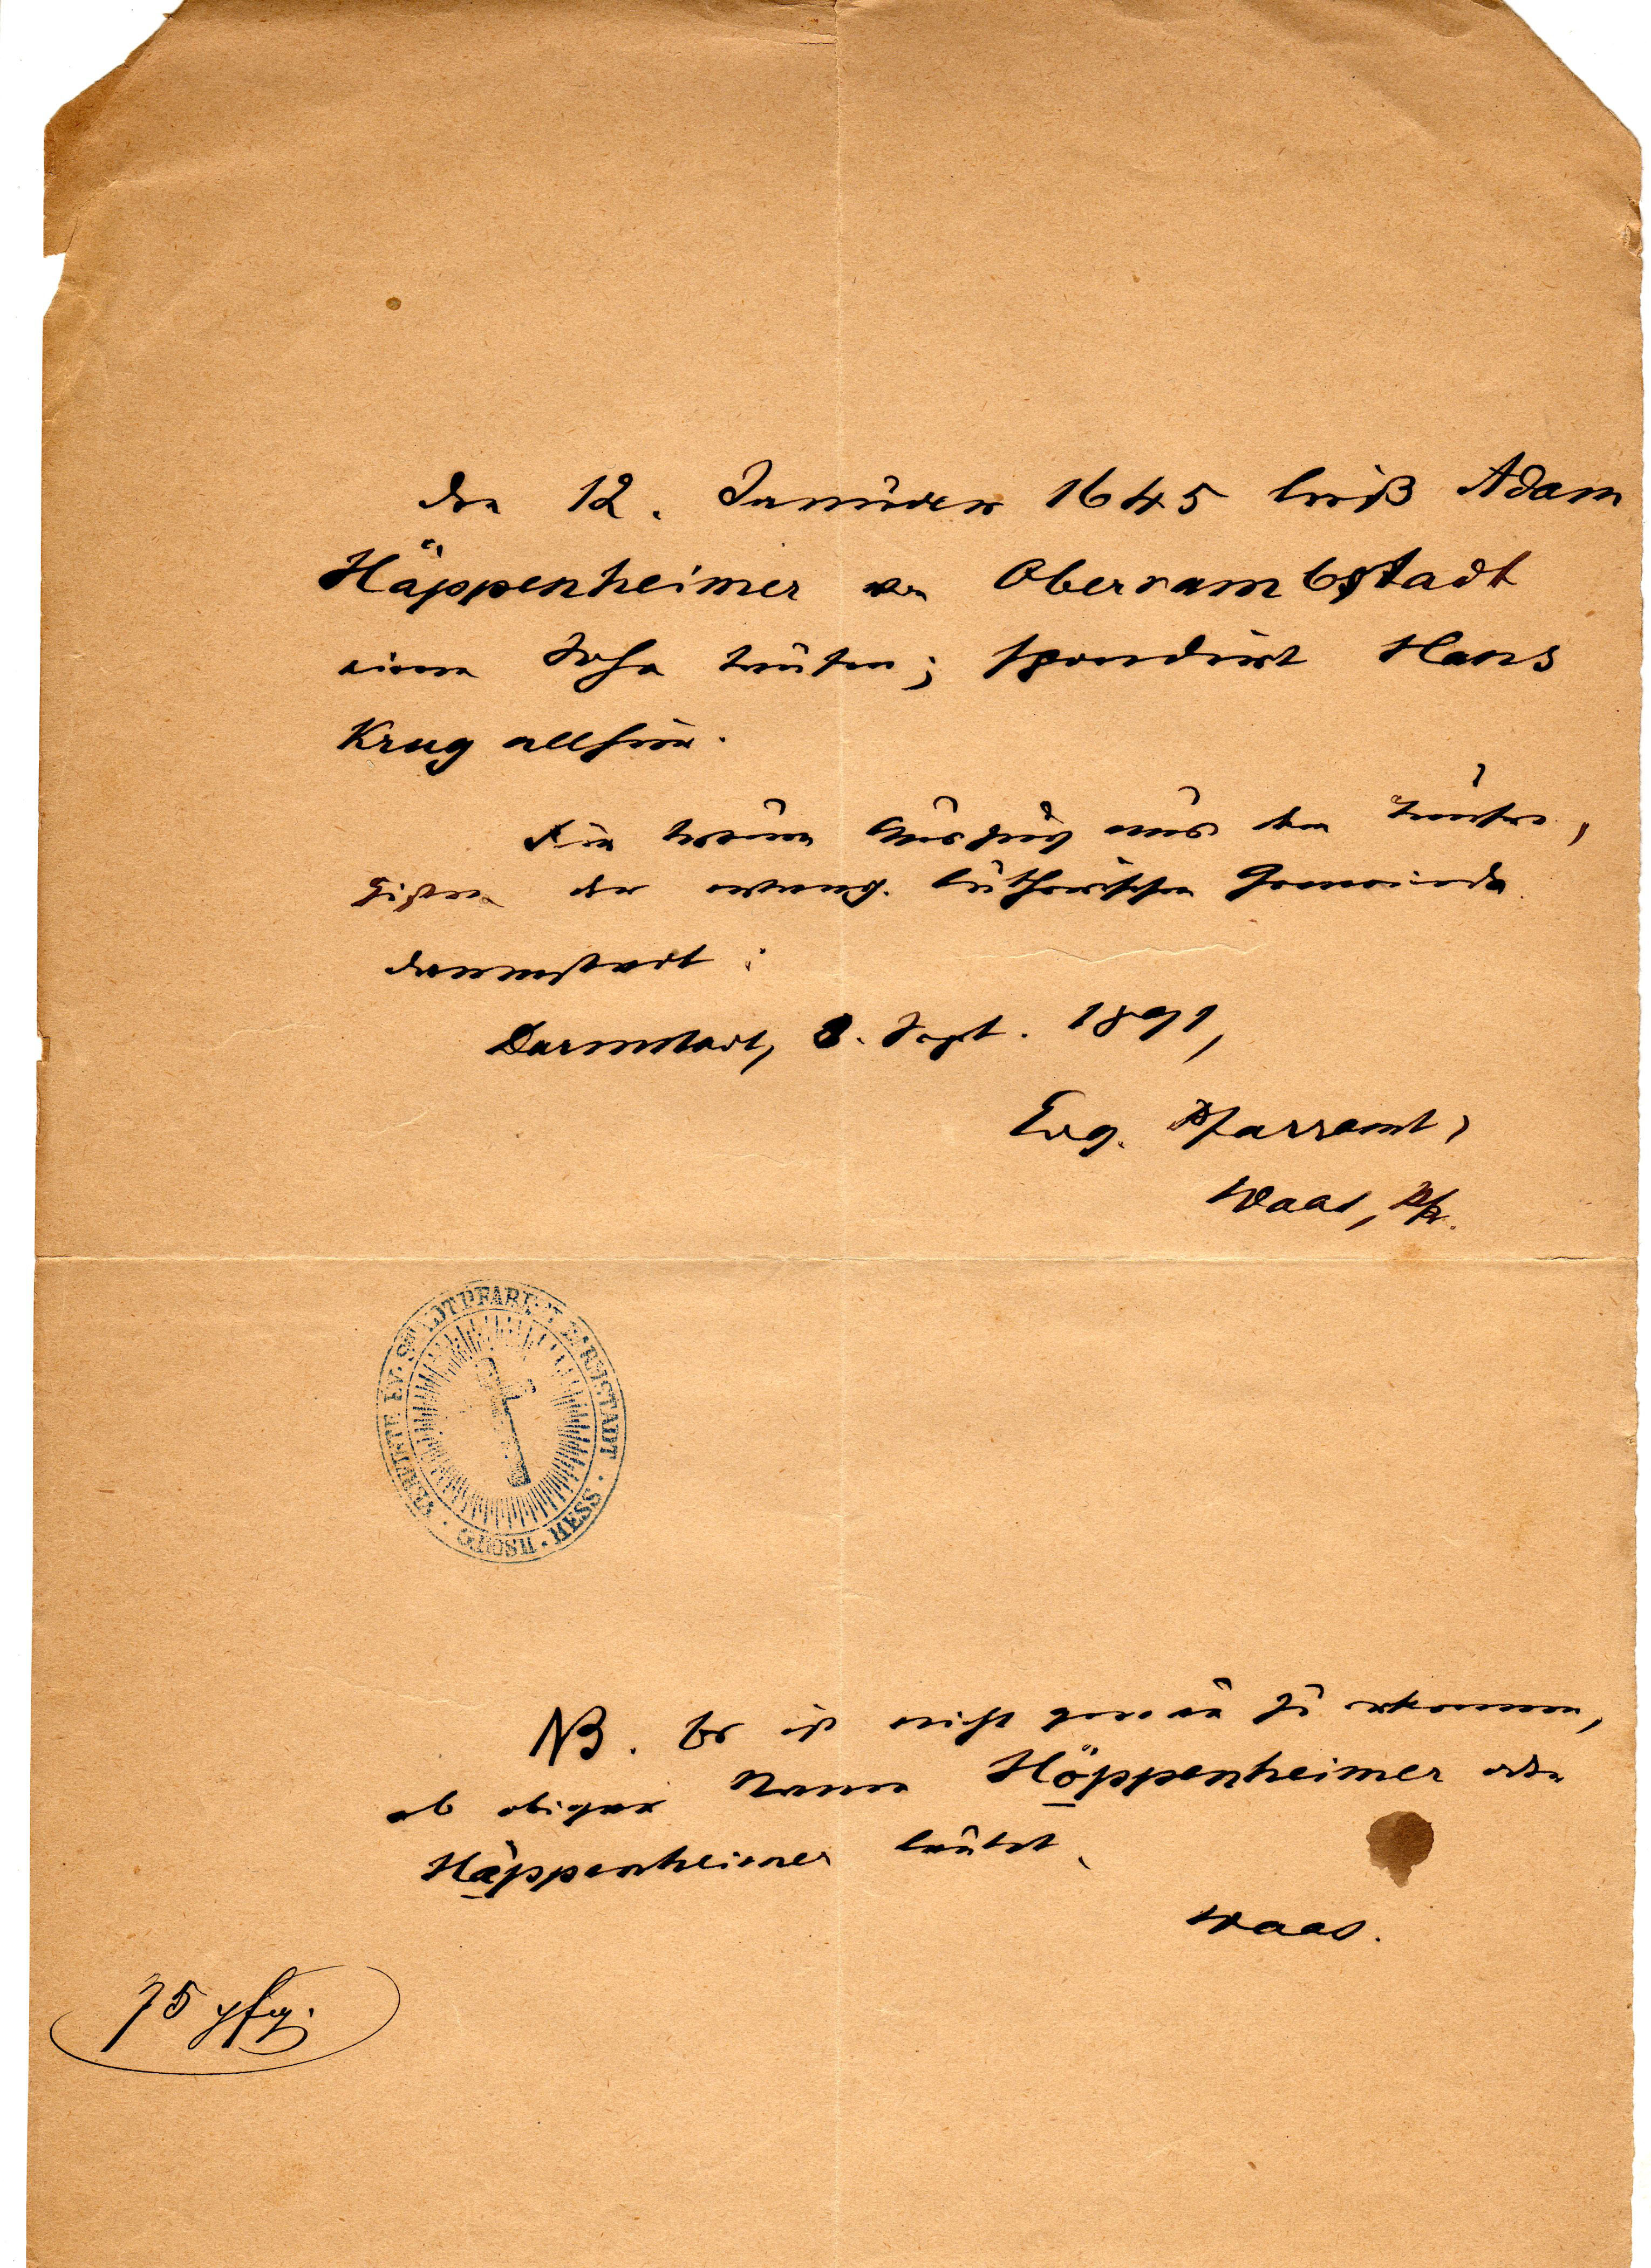 den 12. Januar 1645 ließ Adam
Häppenheimer von Oberrambstadt
einen Sohn taufen; spondirt Hans
Krug allhier.
Für treuen Auszug aus den Taufre-
gistern der evang. lutherischen Gemeinde
Darmstadt:
Darmstadt, 8. Sept. 1891,
Evg. Pfarramt,
Waas, Pfr.
EV. STADTPFARREI DARMSTADT · GROSH · HESS ·
NB. Es ist nicht genau zu erkennen,
ob obiger Name Höppenheimer oder
Häppenheimer lautet.
Waas.
75 pfg.